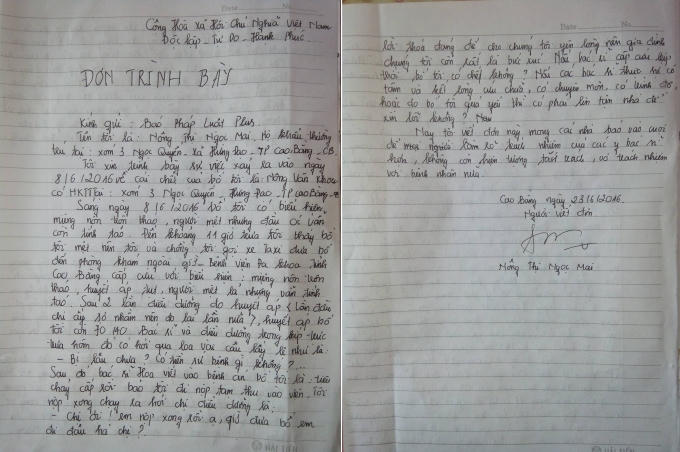 Cộng Hoà Xã Hội Chủ Nghĩa Việt Nam
Độc lập _ Tự Do _ Hạnh Phúc.
ĐƠN TRÌNH BÀY
Kính gửi: Báo Pháp Luật Plus
Tên tôi là: Nông Thị Ngọc Mai, Hộ khẩu thường
trú tại: xóm 3 Ngọc Quyến _ xã Hưng Đạo _ TP Cao Bằng _ CB
Tôi xin trình bày sự việc xảy ra vào ngày
8/6/2016 về cái chết của bố tôi là: Nông Văn Khoa
có HKTT tại: xóm 3 Ngọc Quyến _ Hưng Đạo _ TP Cao Bằng
Sáng ngày 8/6/2016 bố tôi có biểu hiện
miệng nôn trôn tháo, người mệt nhưng đầu óc vẫn
còn tỉnh táo. Đến khoảng 11 giờ trưa tôi thấy bố
tôi mệt nên tôi và chồng tôi gọi xe Taxi đưa bố
đến phòng khám ngoại giờ _ Bệnh viện Đa khoa tỉnh
Cao Bằng cấp cứu với biểu hiện: miệng nôn trôn
tháo, huyết áp tụt, người mệt lả nhưng vẫn tỉnh
táo. Sau 2 lần điều dưỡng đo huyết áp (Lần đầu
chị ấy nên đo lại lần nữa), huyết áp bố
tôi còn 70/40. Bác sĩ và điều dưỡng trong trực
trưa hôm đó có hỏi qua loa vài câu lấy lệ như là:
_ Bị lâu chưa? Có tiền sử bệnh gì không?...
Sau đó bác sĩ Hoa viết vào bệnh án bố tôi là: tiêu
chảy cấp rồi bảo tôi đi nộp tạm thu vào viện. Tôi
nộp xong chạy ra hỏi chị điều dưỡng là:
_ Chị ơi! em nộp xong rồi ạ, giờ đưa bố em
đi đâu hả chị?
HẢI TIẾN
lời thoả đáng để cho chúng tôi yên lòng nên gia đình
chúng tôi còn rất là bức xúc. Nếu bác sĩ cấp cứu kịp
thời bố tôi có chết không? Nếu các bác sĩ thực sự có
tâm và hết lòng cứu chữa, có chuyên môn, có trình độ,
hoặc do bố tôi quá yếu thì có phải lên tận nhà để
xin lỗi không?
Nay tôi viết đơn này mong các nhà báo vào cuộc
để mọi người làm rõ trách nhiệm của các y bác sĩ
hơn, không còn hiện tượng tắc trách, vô trách nhiệm
với bệnh nhân nữa.
Cao Bằng ngày 23/6/2016.
Người viết đơn
Nông Thị Ngọc Mai